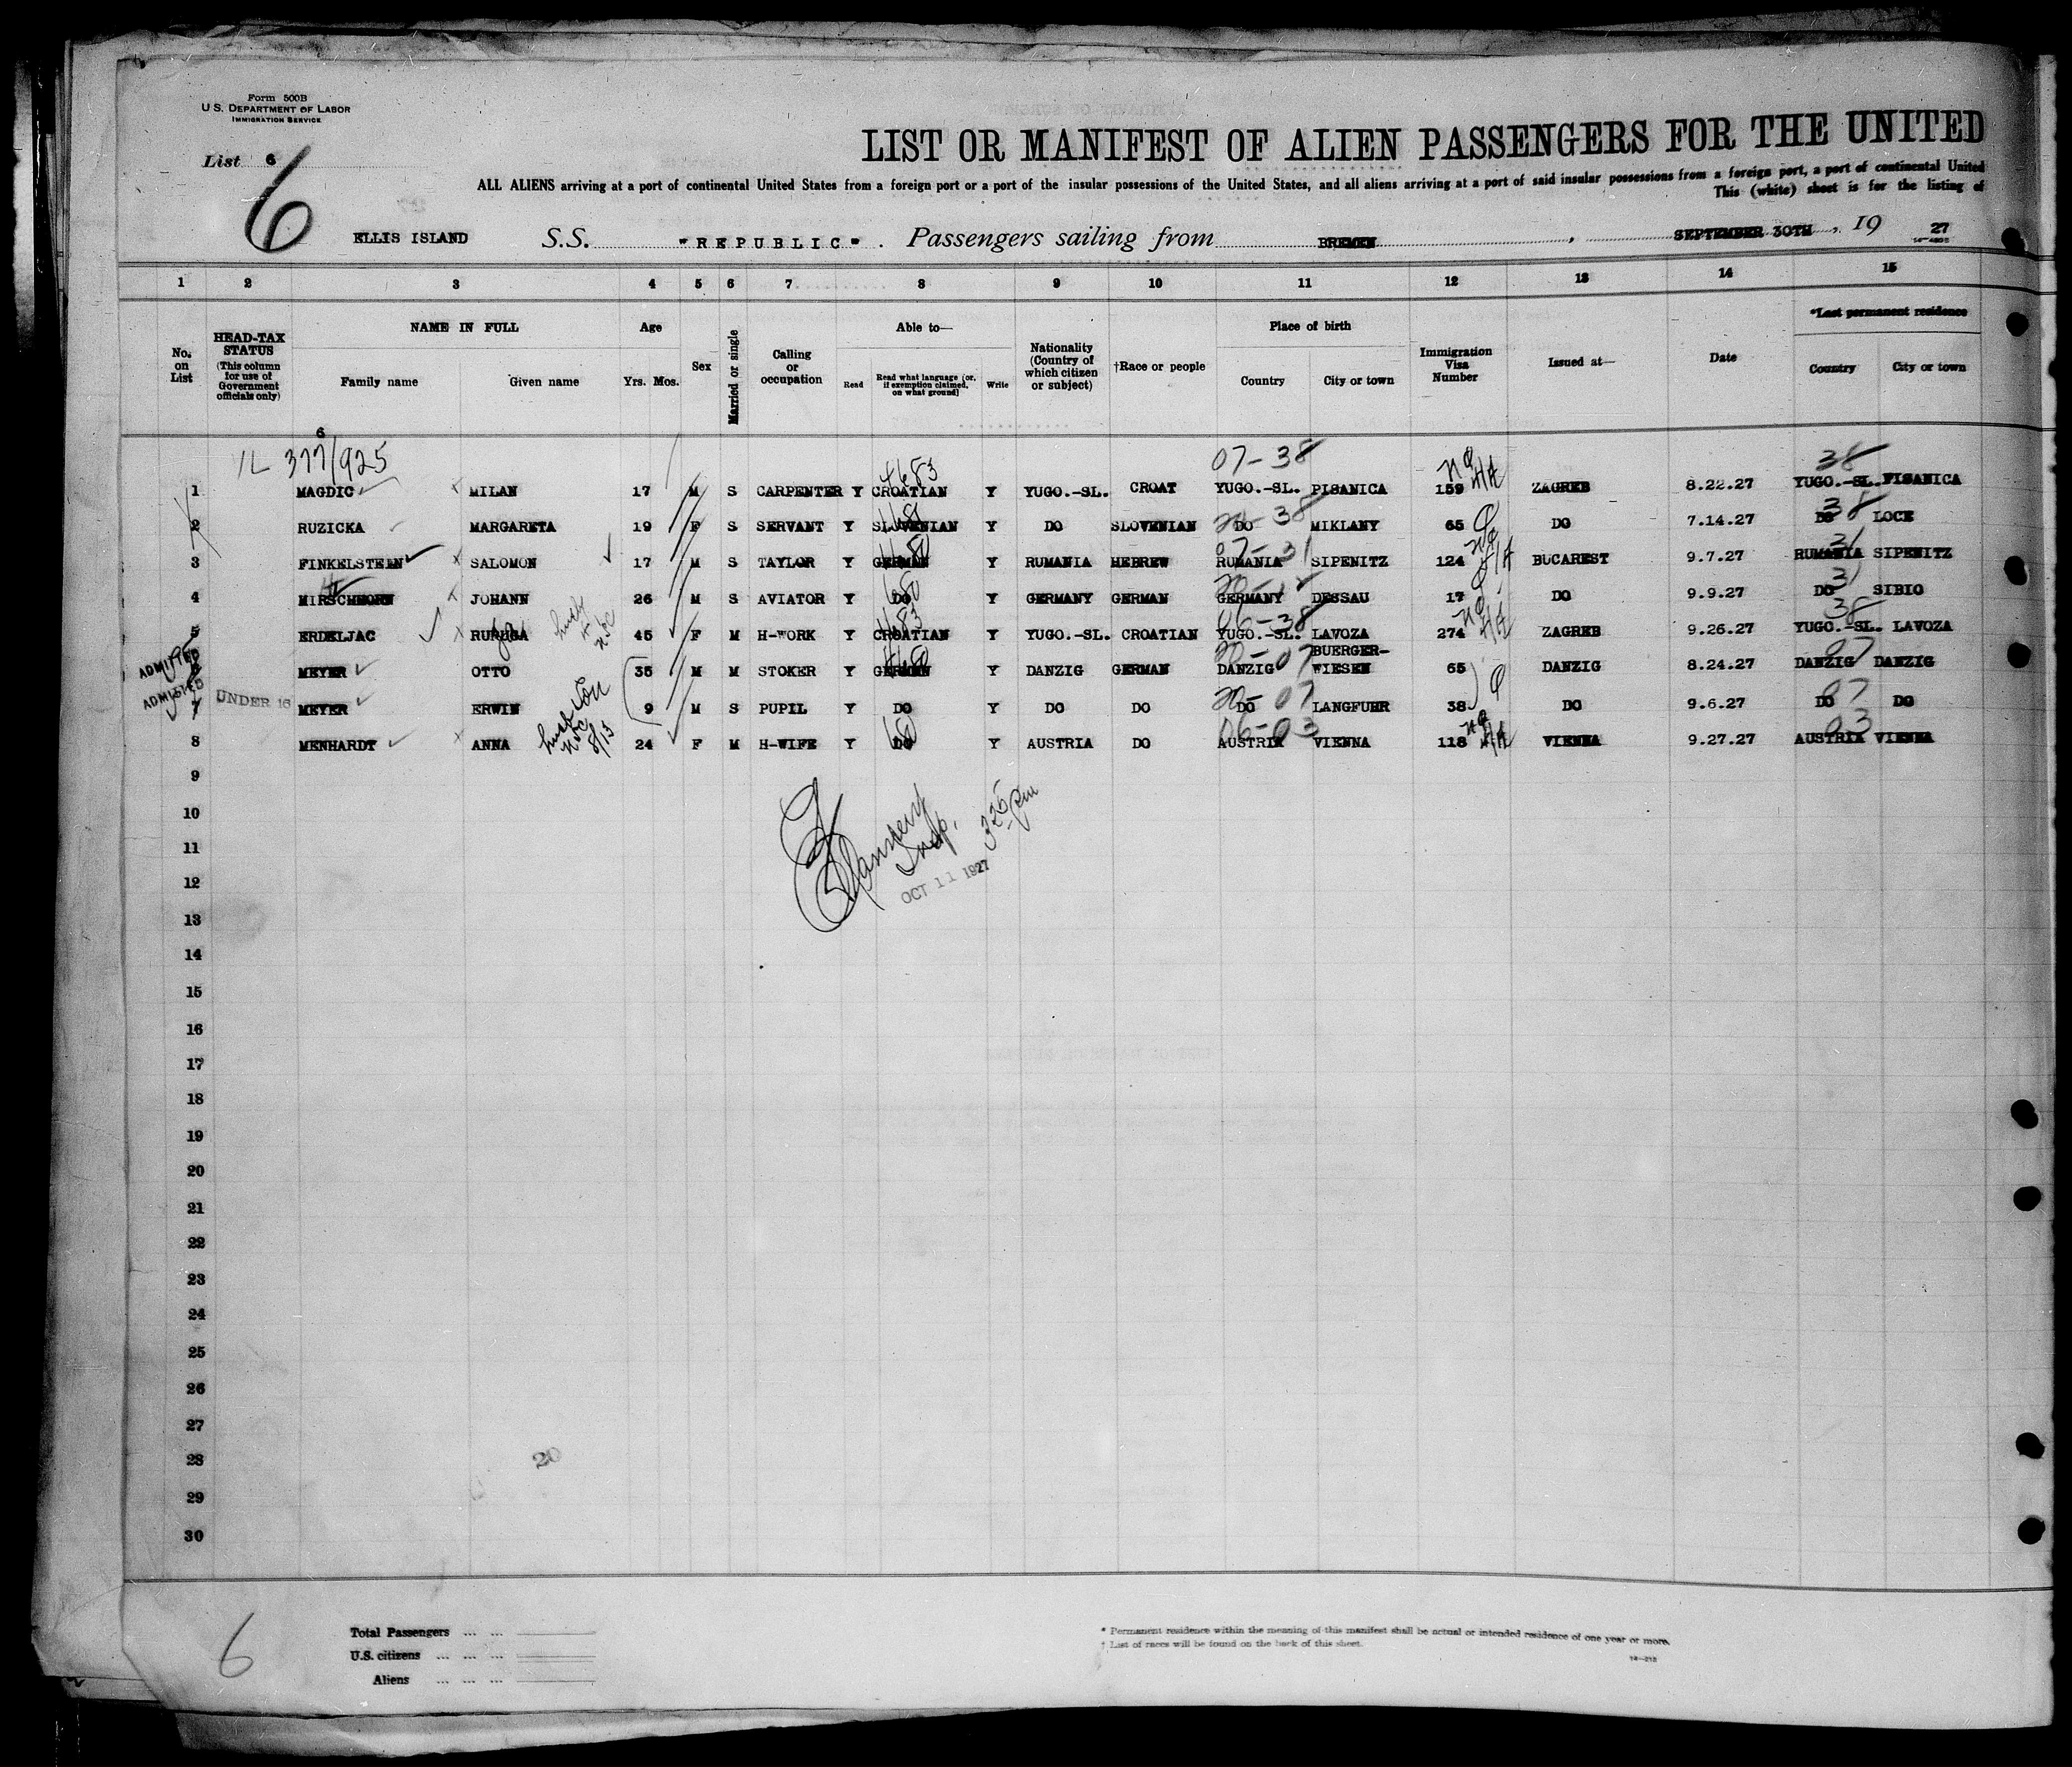 Form 500B
U.S. DEPARTMENT OF LABOR
IMMIGRATION SERVICE
List 6
6
LIST OR MANIFEST OF ALIEN PASSENGERS FOR THE UNITED
ALL ALIENS arriving at a port of continental United States from a foreign port or a port of the insular possessions of the United States, and all aliens arriving at a port of said insular possessions from a foreign port, a port of continental United
This (white) sheet is for the listing of
ELLIS ISLAND S.S. "REPUBLIC". Passengers sailing from BREMEN, SEPTEMBER 30TH, 19 27
1 2 3 4 5 6 7 8 9 10 11 12 13 14 15
No. on List
HEAD-TAX STATUS (This column for use of Government officials only)
NAME IN FULL
Family name Given name
Age
Yrs. Mos.
Sex
Married or single
Calling or occupation
Able to—
Read Read what language (or, if exemption claimed, on what ground) Write
Nationality (Country of which citizen or subject)
†Race or people
Place of birth
Country City or town
Immigration Visa Number
Issued at—
Date
*Last permanent residence
Country City or town
6
377/925 4683 07-38 38
1 MAGDIC MILAN 17 M S CARPENTER Y CROATIAN Y YUGO.-SL. CROAT YUGO.-SL. PISANICA 159 ZAGREB 8.22.27 YUGO.-SL. PISANICA
2 RUZICKA MARGARETA 19 F S SERVANT Y SLOVENIAN Y DO SLOVENIAN DO MIKLANY 65 DO 7.14.27 DO LOCE
3 FINKELSTEIN SALOMON 17 M S TAYLOR Y GERMAN Y RUMANIA HEBREW RUMANIA SIPENITZ 124 BUCAREST 9.7.27 RUMANIA SIPENITZ
4 HIRSCHHORN JOHANN 26 M S AVIATOR Y DO Y GERMANY GERMAN GERMANY DESSAU 17 DO 9.9.27 DO SIBIO
5 ERDELJAC RURUGA 45 F M H-WORK Y CROATIAN Y YUGO.-SL. CROATIAN YUGO.-SL. LAVOZA 274 ZAGREB 9.26.27 YUGO.-SL. LAVOZA
ADMITTED 6 MEYER OTTO 35 M M STOKER Y GERMAN Y DANZIG GERMAN DANZIG BUERGER-WIESEN 65 DANZIG 8.24.27 DANZIG DANZIG
ADMITTED 7 UNDER 16 MEYER ERWIN 9 M S PUPIL Y DO Y DO DO DO LANGFUHR 38 DO 9.6.27 DO DO
8 MENHARDT ANNA 24 F M H-WIFE Y DO Y AUSTRIA DO AUSTRIA VIENNA 118 VIENNA 9.27.27 AUSTRIA VIENNA
9
10
11
12
Insp. 325 pm
OCT 11 1927
13
14
15
16
17
18
19
20
21
22
23
24
25
26
27
28
20
29
30
6
Total Passengers ... ...
U.S. citizens ... ... ...
Aliens ... ... ...
* Permanent residence within the meaning of this manifest shall be actual or intended residence of one year or more.
† List of races will be found on the back of this sheet.